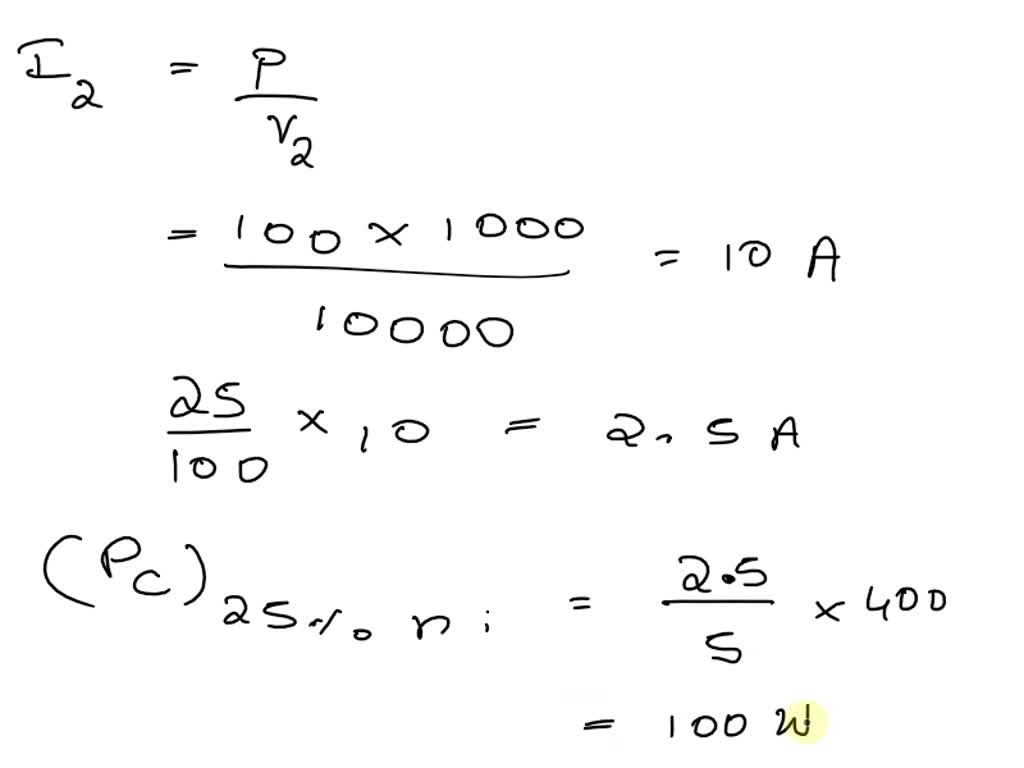 I₂ = P / V₂
= 100 × 1000 / 10000 = 10 A
25 / 100 × 10 = 2.5 A
(Pc) 25% n i = 2.5 / 5 × 400
= 100 W